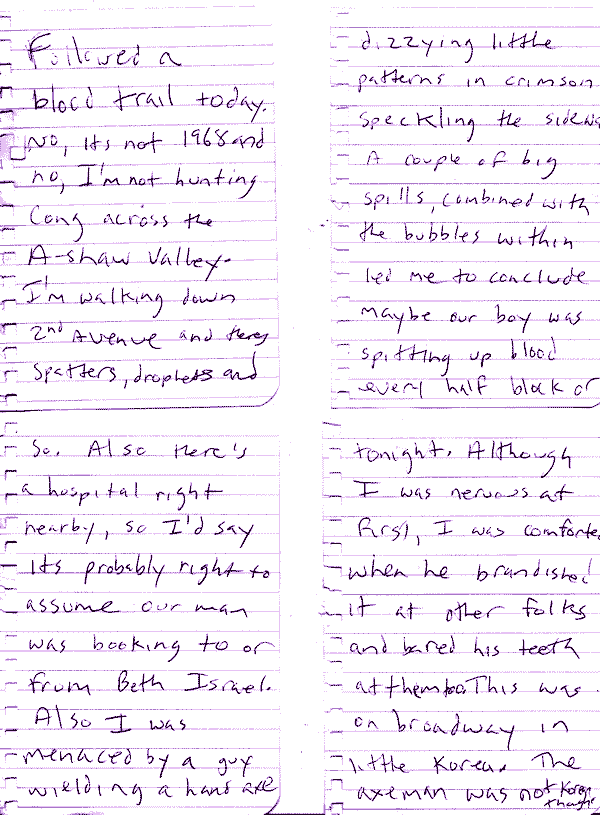 Followed a
blood trail today.
No, its not 1968 and
no, I'm not hunting
Cong across the
A-shaw Valley.
I'm walking down
2nd Avenue and theres
spatters, droplets and
dizzying little
patterns in crimson
speckling the sidewa
A couple of big
spills, combined with
the bubbles within
led me to conclude
maybe our boy was
spitting up blood
every half block or
so. Also there's
a hospital right
nearby, so I'd say
its probably right to
assume our man
was booking to or
from Beth Israel.
Also I was
menaced by a guy
wielding a hand axe
tonight. Although
I was nervous at
first, I was comforte
when he brandished
it at other folks
and bared his teeth
at them too. This was
on broadway in
little Korea. The
axeman was not Korean
though